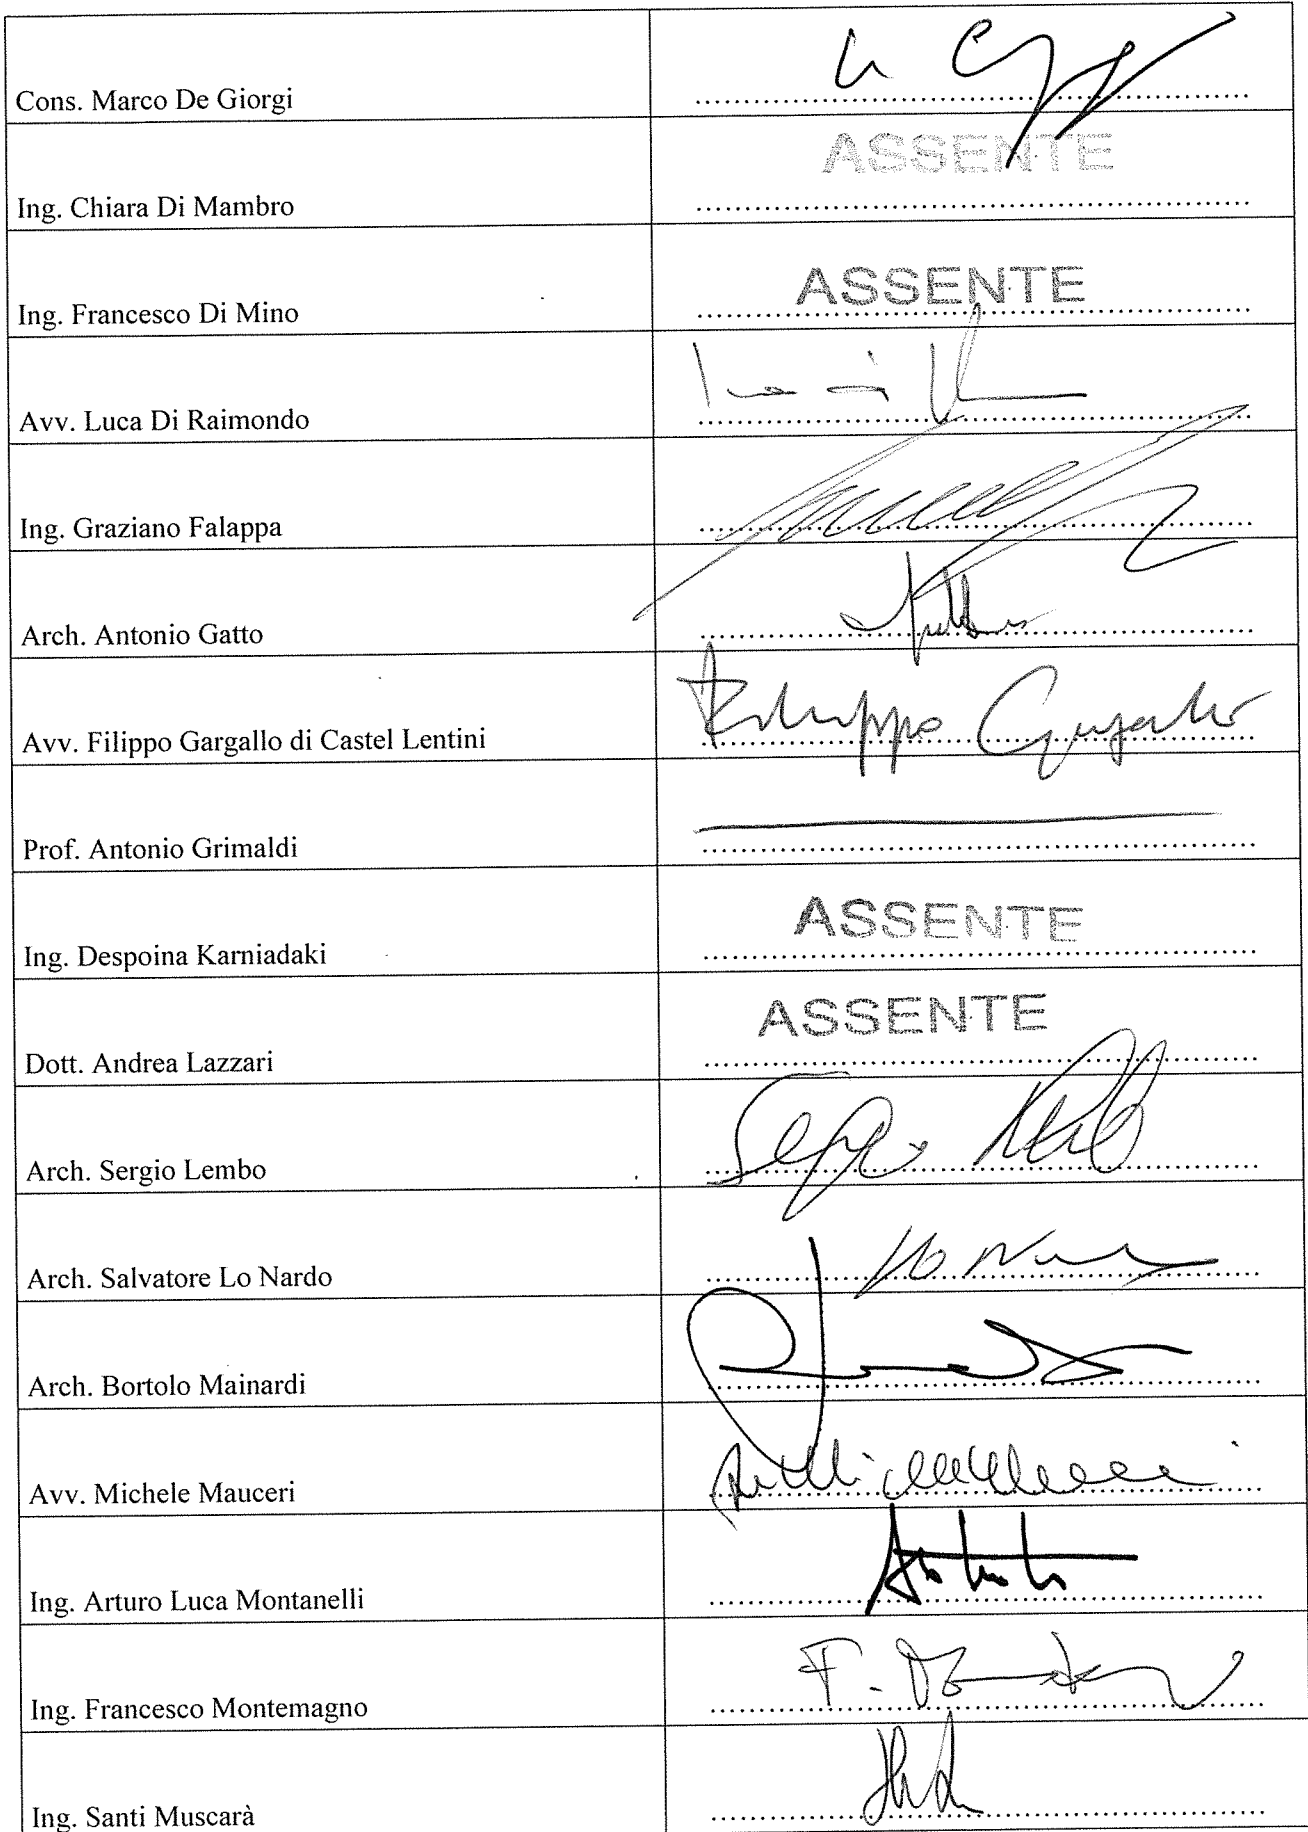 Cons. Marco De Giorgi
Ing. Chiara Di Mambro ASSENTE
Ing. Francesco Di Mino ASSENTE
Avv. Luca Di Raimondo
Ing. Graziano Falappa
Arch. Antonio Gatto
Avv. Filippo Gargallo di Castel Lentini Filippo Gargallo
Prof. Antonio Grimaldi
Ing. Despoina Karniadaki ASSENTE
Dott. Andrea Lazzari ASSENTE
Arch. Sergio Lembo Sergio Lembo
Arch. Salvatore Lo Nardo Lo Nardo
Arch. Bortolo Mainardi
Avv. Michele Mauceri
Ing. Arturo Luca Montanelli
Ing. Francesco Montemagno
Ing. Santi Muscarà